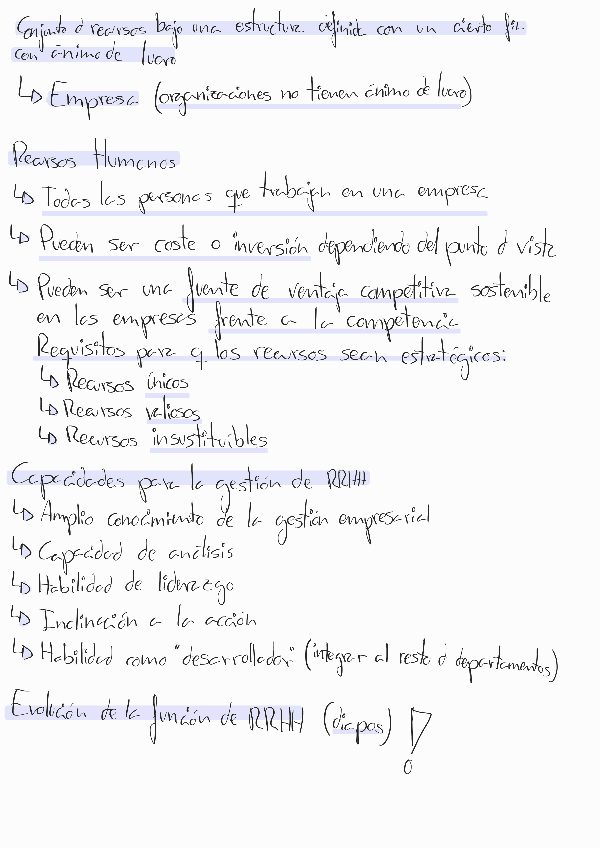 Conjunto d recursos bajo una estructura definida con un cierto fin
con ánimo de lucro
↳ Empresa (organizaciones no tienen ánimo de lucro)
Recursos Humanos
↳ Todas las personas que trabajan en una empresa
↳ Pueden ser coste o inversión dependiendo del punto d vista
↳ Pueden ser una fuente de ventaja competitiva sostenible
en las empresas frente a la competencia
Requisitos para q los recursos sean estratégicos:
↳ Recursos únicos
↳ Recursos valiosos
↳ Recursos insustituibles
Capacidades para la gestión de RRHH
↳ Amplio conocimiento de la gestión empresarial
↳ Capacidad de análisis
↳ Habilidad de liderazgo
↳ Inclinación a la acción
↳ Habilidad como "desarrollador" (integrar al resto d departamentos)
Evolución de la función de RRHH (diapos) !